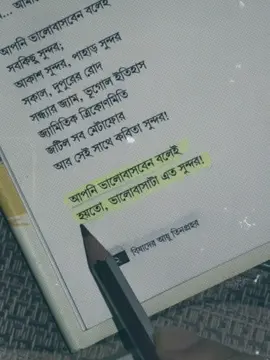 আপনি ভালোবাসবেন বলেই
সবকিছু সুন্দর;
আকাশ সুন্দর, পাহাড় সুন্দর
সকাল, দুপুরের রোদ
সন্ধ্যার জ্যাম, ভূগোল ইতিহাস
জ্যামিতিক ত্রিকোণমিতি
জটিল সব মেটাফোর
আর সেই সাথে কবিতা সুন্দর!
আপনি ভালোবাসবেন বলেই
হয়তো, ভালোবাসাটা এত সুন্দর!
বিষাদের আয়ু তিনপ্রহর